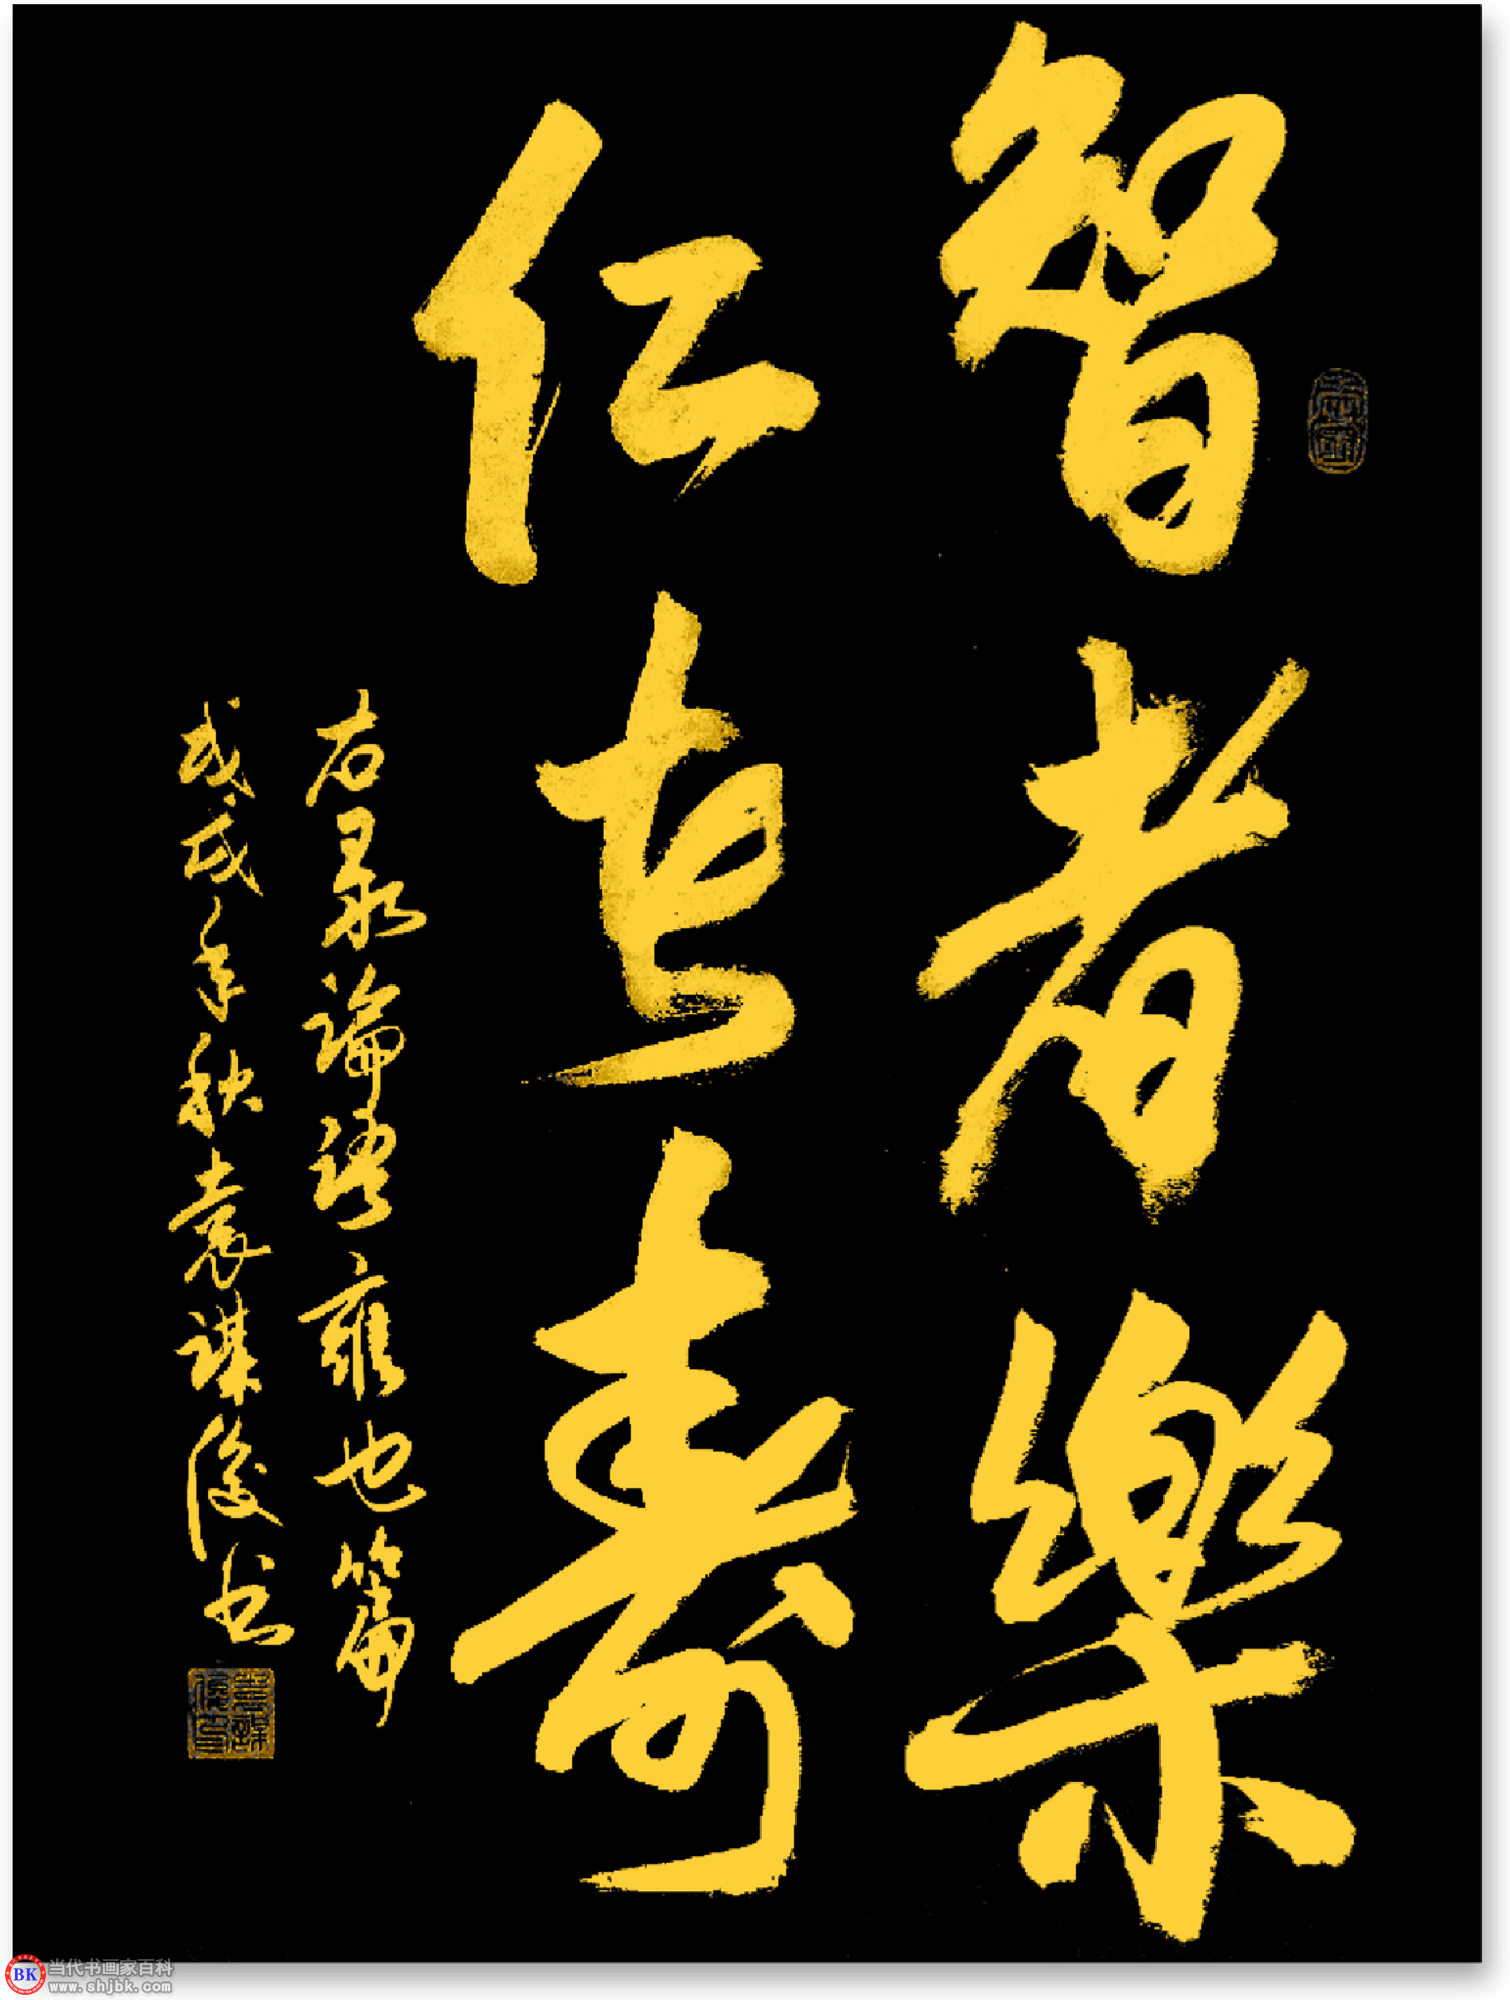 智者樂
仁者壽
右录論語雍也篇
戊戌年秋袁謀後书
BK
当代书画家百科
www.shjbk.com